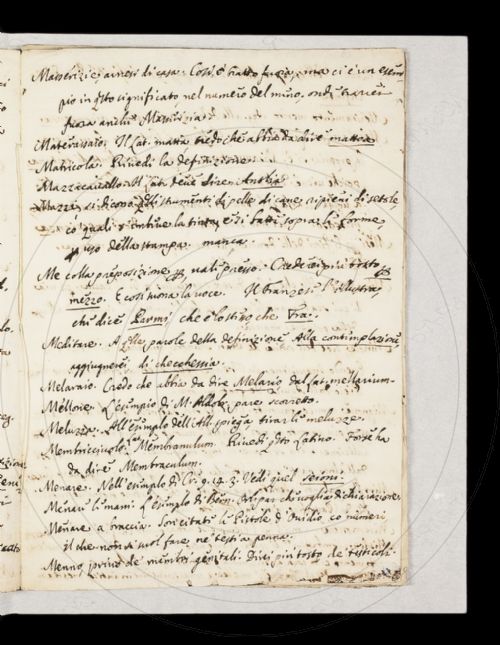 Masserizie, arnesi di casa. Così, è tratto fuora, ma ci è un esem
pio in questo significato, nel numero del mino. onde trarrei
fuora anche Masserizia.
Materassaio. Il lat. matta credo che abbia da dire mattea
Matricola. Rivedi la definizione.
Mazzacavallo. Il lat. deve dire Antlia
Mazze, si dicono gli strumenti di pelle di cane, ripieni di setole
co' quali s'intinse la tinta, e si batte sopra le forme,
p uso della stampa. manca.
Me colla preposizione per vale presso. Crederei più tosto per
mezzo. E così suona la voce. Il franzese l'illustra,
che dice Parmi, che è lo stesso che Fra.
Meditare. A quelle parole della definizione Alla contemplazione,
aggiugnerei di checchessia.
Melaraio. Credo che abbia da dire Melario dal lat. mellarium.
Mellone. L'esempio di M. Aldob. pare scorretto.
Meluzza. All'esempio dell'All. spiega tirar le meluzze.
Membricciuolo. lat. Membranulum. Rivedi questo Latino. Forse ha
da dire Membraculum.
Menare. Nell'esempio di Cr. 9. 14. 3. Vedi quel seioni.
Menare le mani. L'esempio di Bern. Orl. par che voglia dichiarazione
Menare a traccia. Son citati le Pistole d'Ovidio co' numeri
il che non si suol fare, nè testi a penna.
Menno, privo de' membri genitali. Direi più tosto de' testicoli.